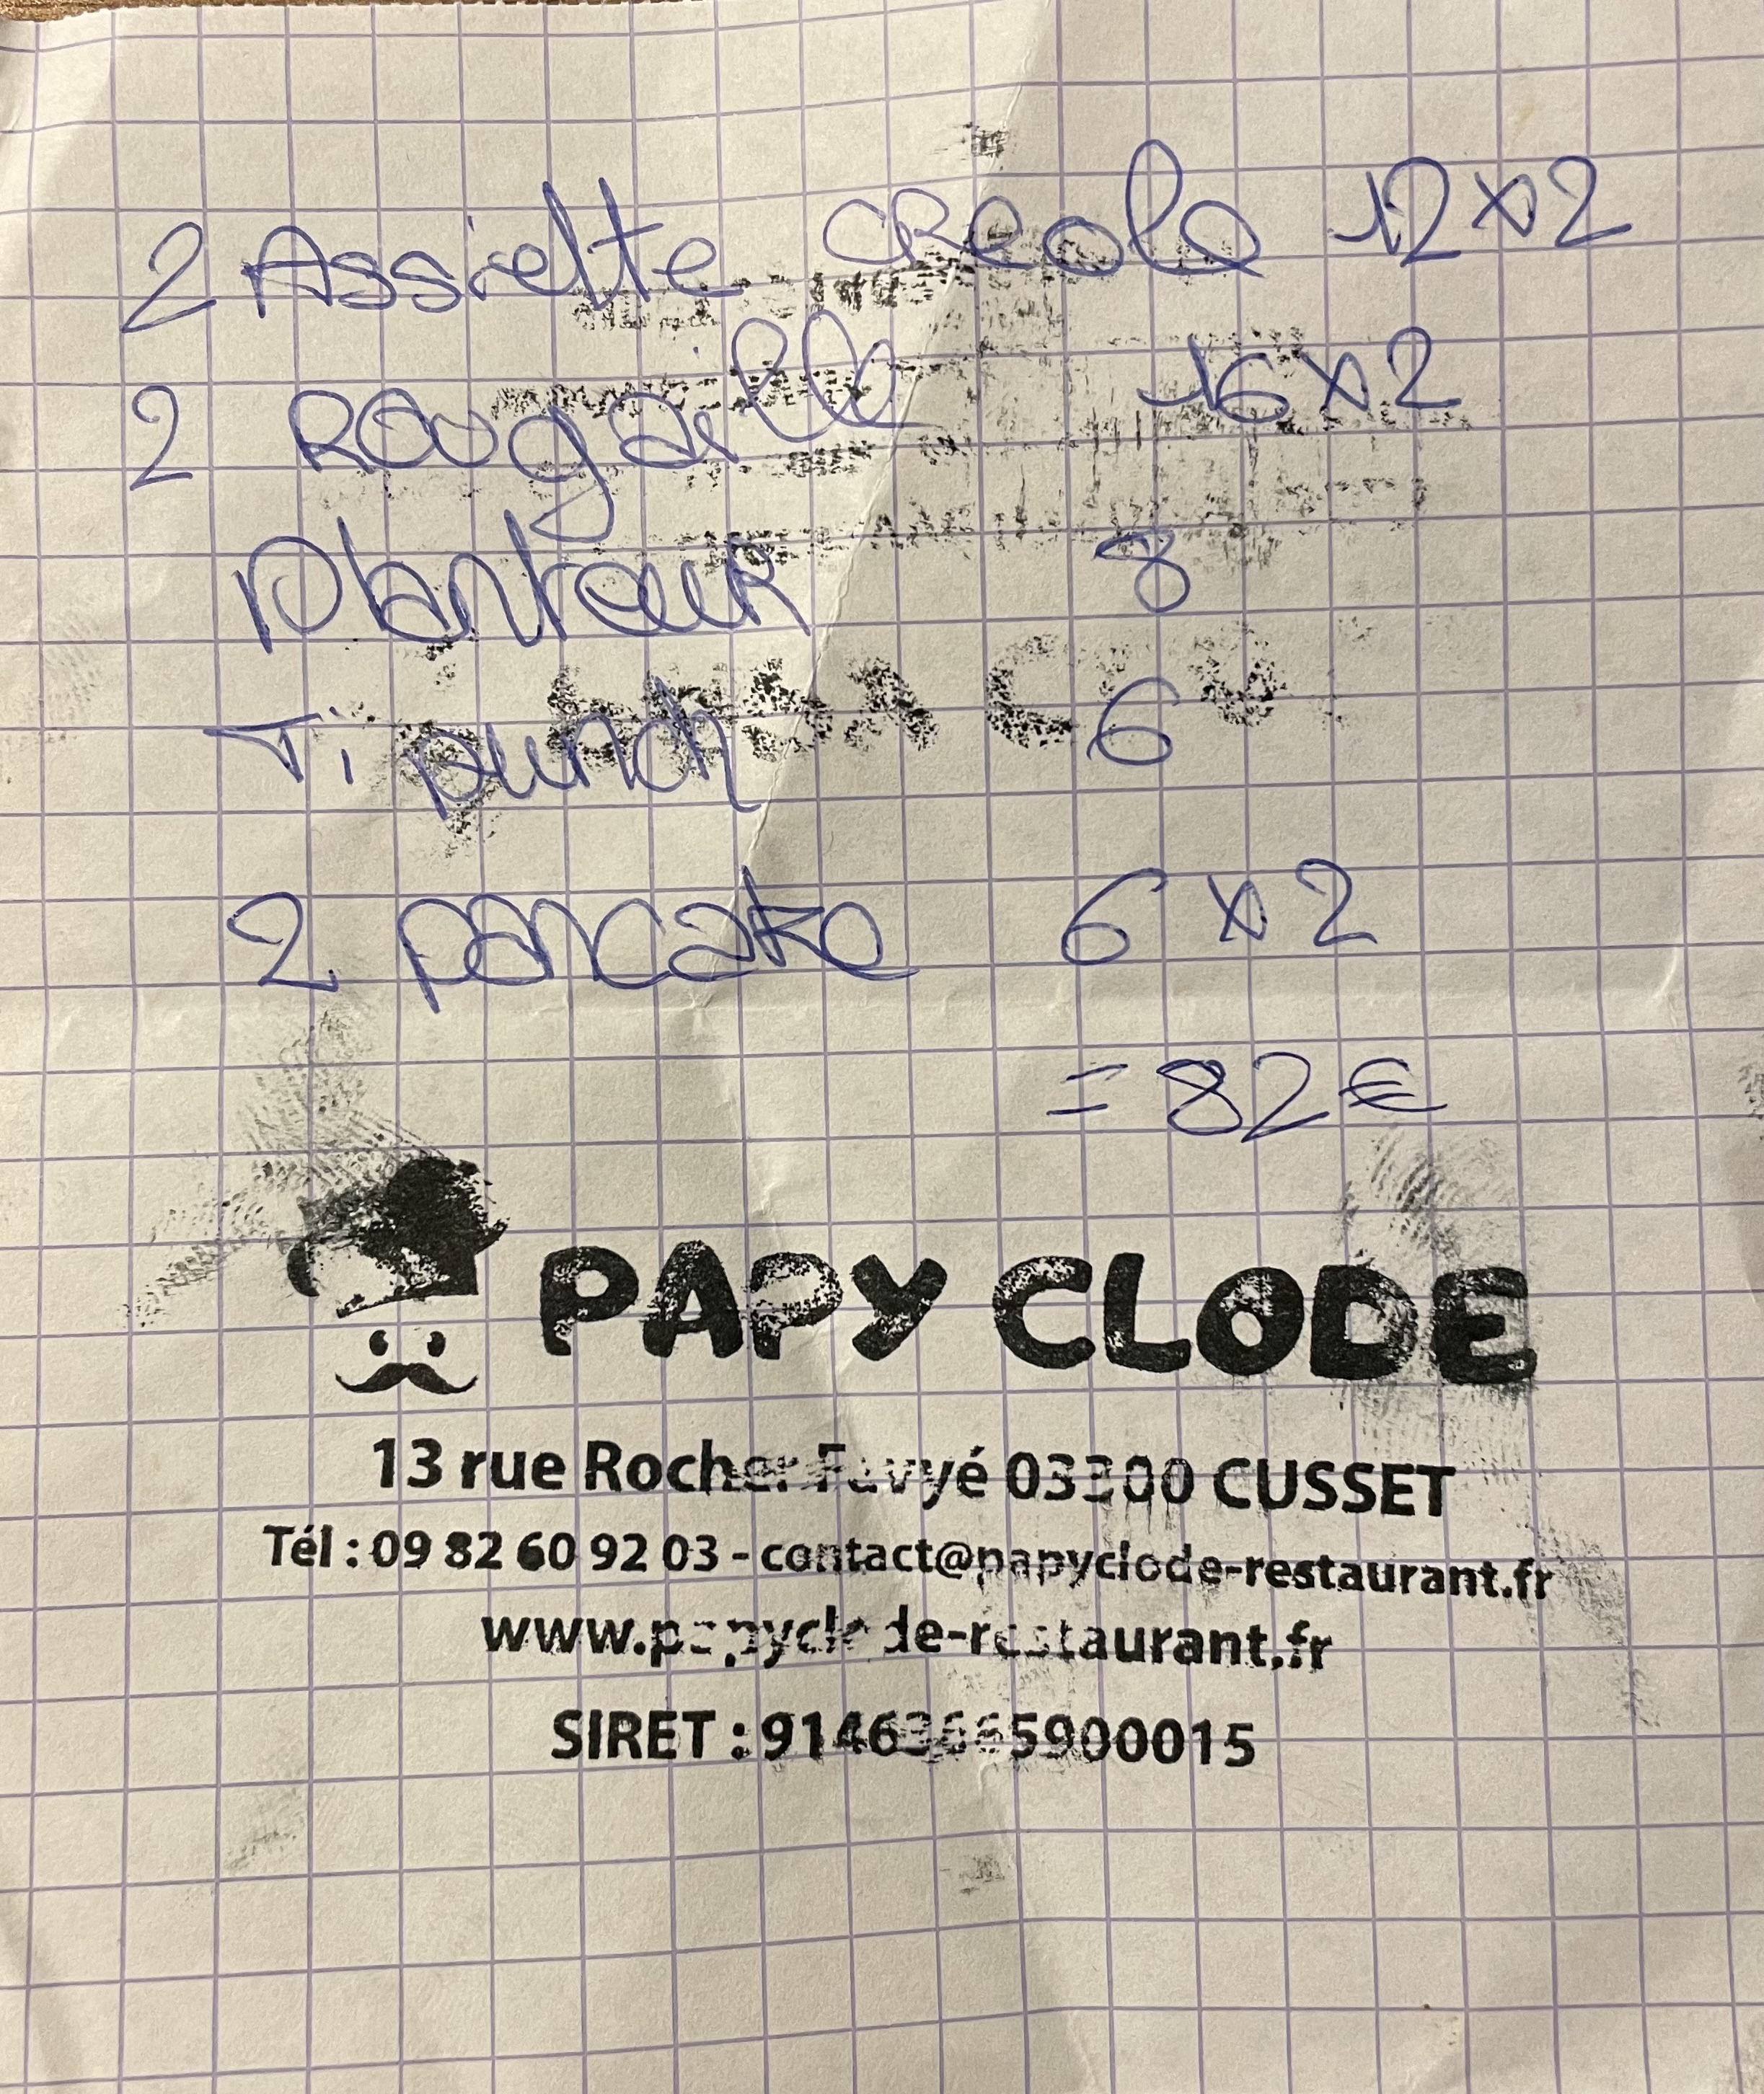 2 Assiette CReole 12 x 2
2 Rougaille 16 x 2
planteuR 8
Ti punch 6
2 pancake 6 x 2
= 82 €
PAPY CLODE
13 rue Rocher Favyé 03300 CUSSET
Tél : 09 82 60 92 03 - contact@papyclode-restaurant.fr
www.papyclode-restaurant.fr
SIRET :